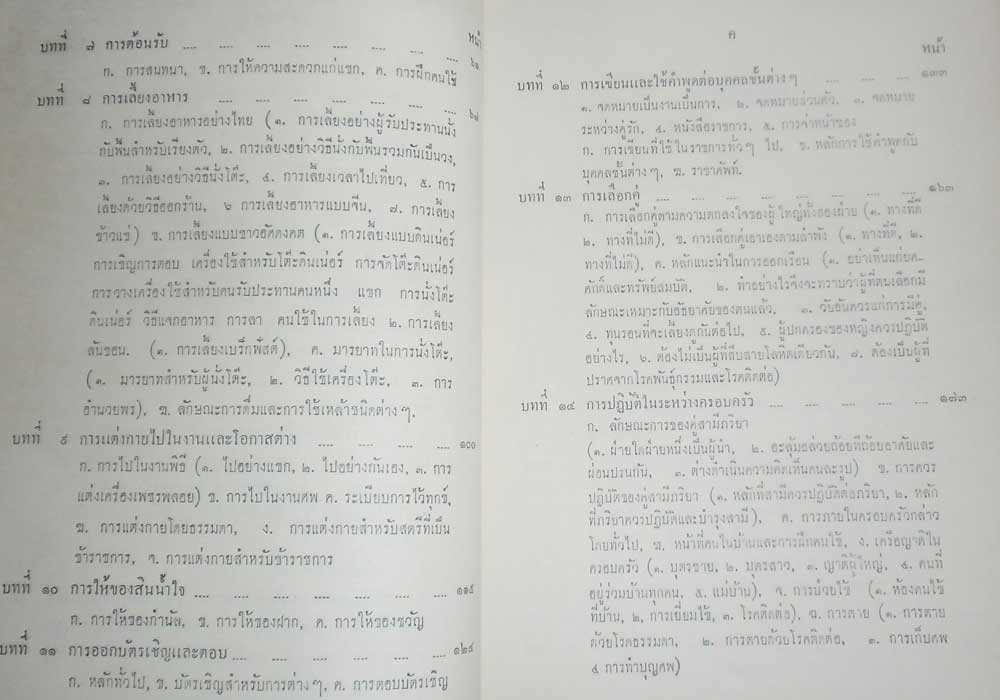 หน้า
บทที่ ๗ การต้อนรับ .... .... .... .... .... .... .... ๖๑
ก. การสนทนา, ข. การให้ความสะดวกแก่แขก, ค. การฝึกคนใช้
บทที่ ๘ การเลี้ยงอาหาร .... .... .... .... .... .... ๖๗
ก. การเลี้ยงอาหารอย่างไทย (๑. การเลี้ยงอย่างผู้รับประทานนั่ง
กับพื้นสำหรับเรียงตัว, ๒. การเลี้ยงอย่างวิธีนั่งกับพื้นรวมกันเป็นวง,
๓. การเลี้ยงอย่างวิธีนั่งโต๊ะ, ๔. การเลี้ยงเวลาไปเที่ยว, ๕. การ
เลี้ยงด้วยวิธีออกร้าน, ๖ การเลี้ยงอาหารแบบจีน, ๗. การเลี้ยง
ข้าวแช่) ข. การเลี้ยงแบบชาวอัศดงคต (๑. การเลี้ยงแบบดินเน่อร์
การเชิญการตอบ เครื่องใช้สำหรับโต๊ะดินเน่อร์ การจัดโต๊ะดินเน่อร์
การวางเครื่องใช้สำหรับคนรับประทานคนหนึ่ง แขก การนั่งโต๊ะ
ดินเน่อร์ วิธีแจกอาหาร การลา คนใช้ในการเลี้ยง ๒. การเลี้ยง
ลันชอน. (๓. การเลี้ยงเบร็กฟัสต์), ค. มารยาทในการนั่งโต๊ะ,
(๑. มารยาทสำหรับผู้นั่งโต๊ะ, ๒. วิธีใช้เครื่องโต๊ะ, ๓. การ
อำนวยพร), ฆ. ลักษณะการดื่มและการใช้เหล้าชนิดต่าง ๆ.
บทที่ ๙ การแต่งกายไปในงานและโอกาสต่าง .... .... .... .... ๑๐๐
ก. การไปในงานพิธี (๑. ไปอย่างแขก, ๒. ไปอย่างกันเอง, ๓. การ
แต่งเครื่องเพชรพลอย) ข. การไปในงานศพ ค. ระเบียบการไว้ทุกข์,
ฆ. การแต่งกายโดยธรรมดา, ง. การแต่งกายสำหรับสตรีที่เป็น
ข้าราชการ, จ. การแต่งกายสำหรับข้าราชการ
บทที่ ๑๐ การให้ของสินน้ำใจ .... .... .... .... .... .... .... ๑๑๕
ก. การให้ของกำนัล, ข. การให้ของฝาก, ค. การให้ของขวัญ
บทที่ ๑๑ การออกบัตรเชิญและตอบ .... .... .... .... .... .... ๑๒๔
ก. หลักทั่วไป, ข. บัตรเชิญสำหรับการต่าง ๆ, ค. การตอบบัตรเชิญ
ค
หน้า
บทที่ ๑๒ การเขียนและใช้คำพูดต่อบุคคลชั้นต่าง ๆ .... .... .... ๑๓๓
๑. จดหมายเป็นงานเป็นการ, ๒. จดหมายส่วนตัว, ๓. จดหมาย
ระหว่างคู่รัก, ๔. หนังสือราชการ, ๕. การจ่าหน้าซอง
ก. การเขียนที่ใช้ในราชการทั่ว ๆ ไป, ข. หลักการใช้คำพูดกับ
บุคคลชั้นต่าง ๆ, ฆ. ราชาศัพท์.
บทที่ ๑๓ การเลือกคู่ .... .... .... .... .... .... .... ๑๖๓
ก. การเลือกคู่ตามความตกลงใจของผู้ใหญ่ทั้งสองฝ่าย (๑. ทางที่ดี
๒. ทางที่ไม่ดี), ข. การเลือกคู่เอาเองตามลำพัง (๑. ทางที่ดี, ๒.
ทางที่ไม่ดี), ค. หลักแนะนำในการออกเรือน (๑. อย่าเห็นแก่ยศ–
ศักดิ์และทรัพย์สมบัติ, ๒. ทำอย่างไรจึงจะทราบว่าผู้ที่ตนเลือกมี
ลักษณะเหมาะกับอัธยาศัยของตนแล้ว, ๓. วัยอันควรแก่การมีคู่,
๔. ทุนรอนที่จะเลี้ยงดูกันต่อไป, ๕. ผู้ปกครองของหญิงควรปฏิบัติ
อย่างไร, ๖. ต้องไม่เป็นผู้ที่สืบสายโลหิตเดียวกัน, ๗. ต้องเป็นผู้ที่
ปราศจากโรคพันธุ์กรรมและโรคติดต่อ)
บทที่ ๑๔ การปฏิบัติในระหว่างครอบครัว .... .... .... .... .... ๑๗๓
ก. ลักษณะการของคู่สามีภริยา
(๑. ฝ่ายใดฝ่ายหนึ่งเป็นผู้นำ, ๒. อะลุ้มอล่วยถ้อยทีถ้อยอาศัยและ
ผ่อนปรนกัน, ๓. ต่างดำเนินความคิดเห็นคนละรูป) ข. การควร
ปฏิบัติของคู่สามีภริยา (๑. หลักที่สามีควรปฏิบัติต่อภริยา, ๒. หลัก
ที่ภริยาควรปฏิบัติและบำรุงสามี), ค. การภายในครอบครัวกล่าว
โดยทั่วไป, ฆ. หน้าที่คนในบ้านและการฝึกคนใช้, ง. เครือญาติใน
ครอบครัว (๑. บุตรชาย, ๒. บุตรสาว, ๓. ญาติผู้ใหญ่, ๔. คนที่
อยู่ร่วมบ้านทุกคน, ๕. แม่บ้าน), จ. การป่วยไข้ (๑. ห้องคนไข้
ที่บ้าน, ๒, การเยี่ยมไข้, ๓. โรคติดต่อ), ฉ. การตาย (๑. การตาย
ด้วยโรคธรรมดา, ๒. การตายด้วยโรคติดต่อ, ๓. การเก็บศพ
๔ การทำบุญศพ)